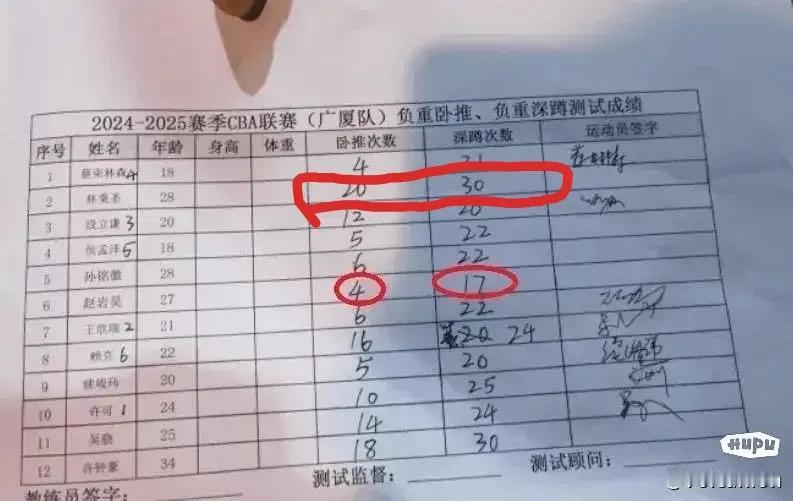 2024-2025赛季CBA联赛（广厦队）负重卧推、负重深蹲测试成绩
序号 姓名 年龄 身高 体重 卧推次数 深蹲次数 运动员签字
1 4 18 4 21
2 林秉圣 28 20 30
3 段立谦 3 20 12 20
4 侯孟泽 5 18 5 22
5 孙铭徽 28 6 22
6 赵岩昊 27 4 17
7 王欣瑞 2 21 6 22
8 赖克 6 22 16 20 24
9 20 5 20
10 许可 1 24 10 25
11 吴骁 25 14 24
12 许钟豪 34 18 30
教练员签字： 测试监督： 测试顾问：
Hupu